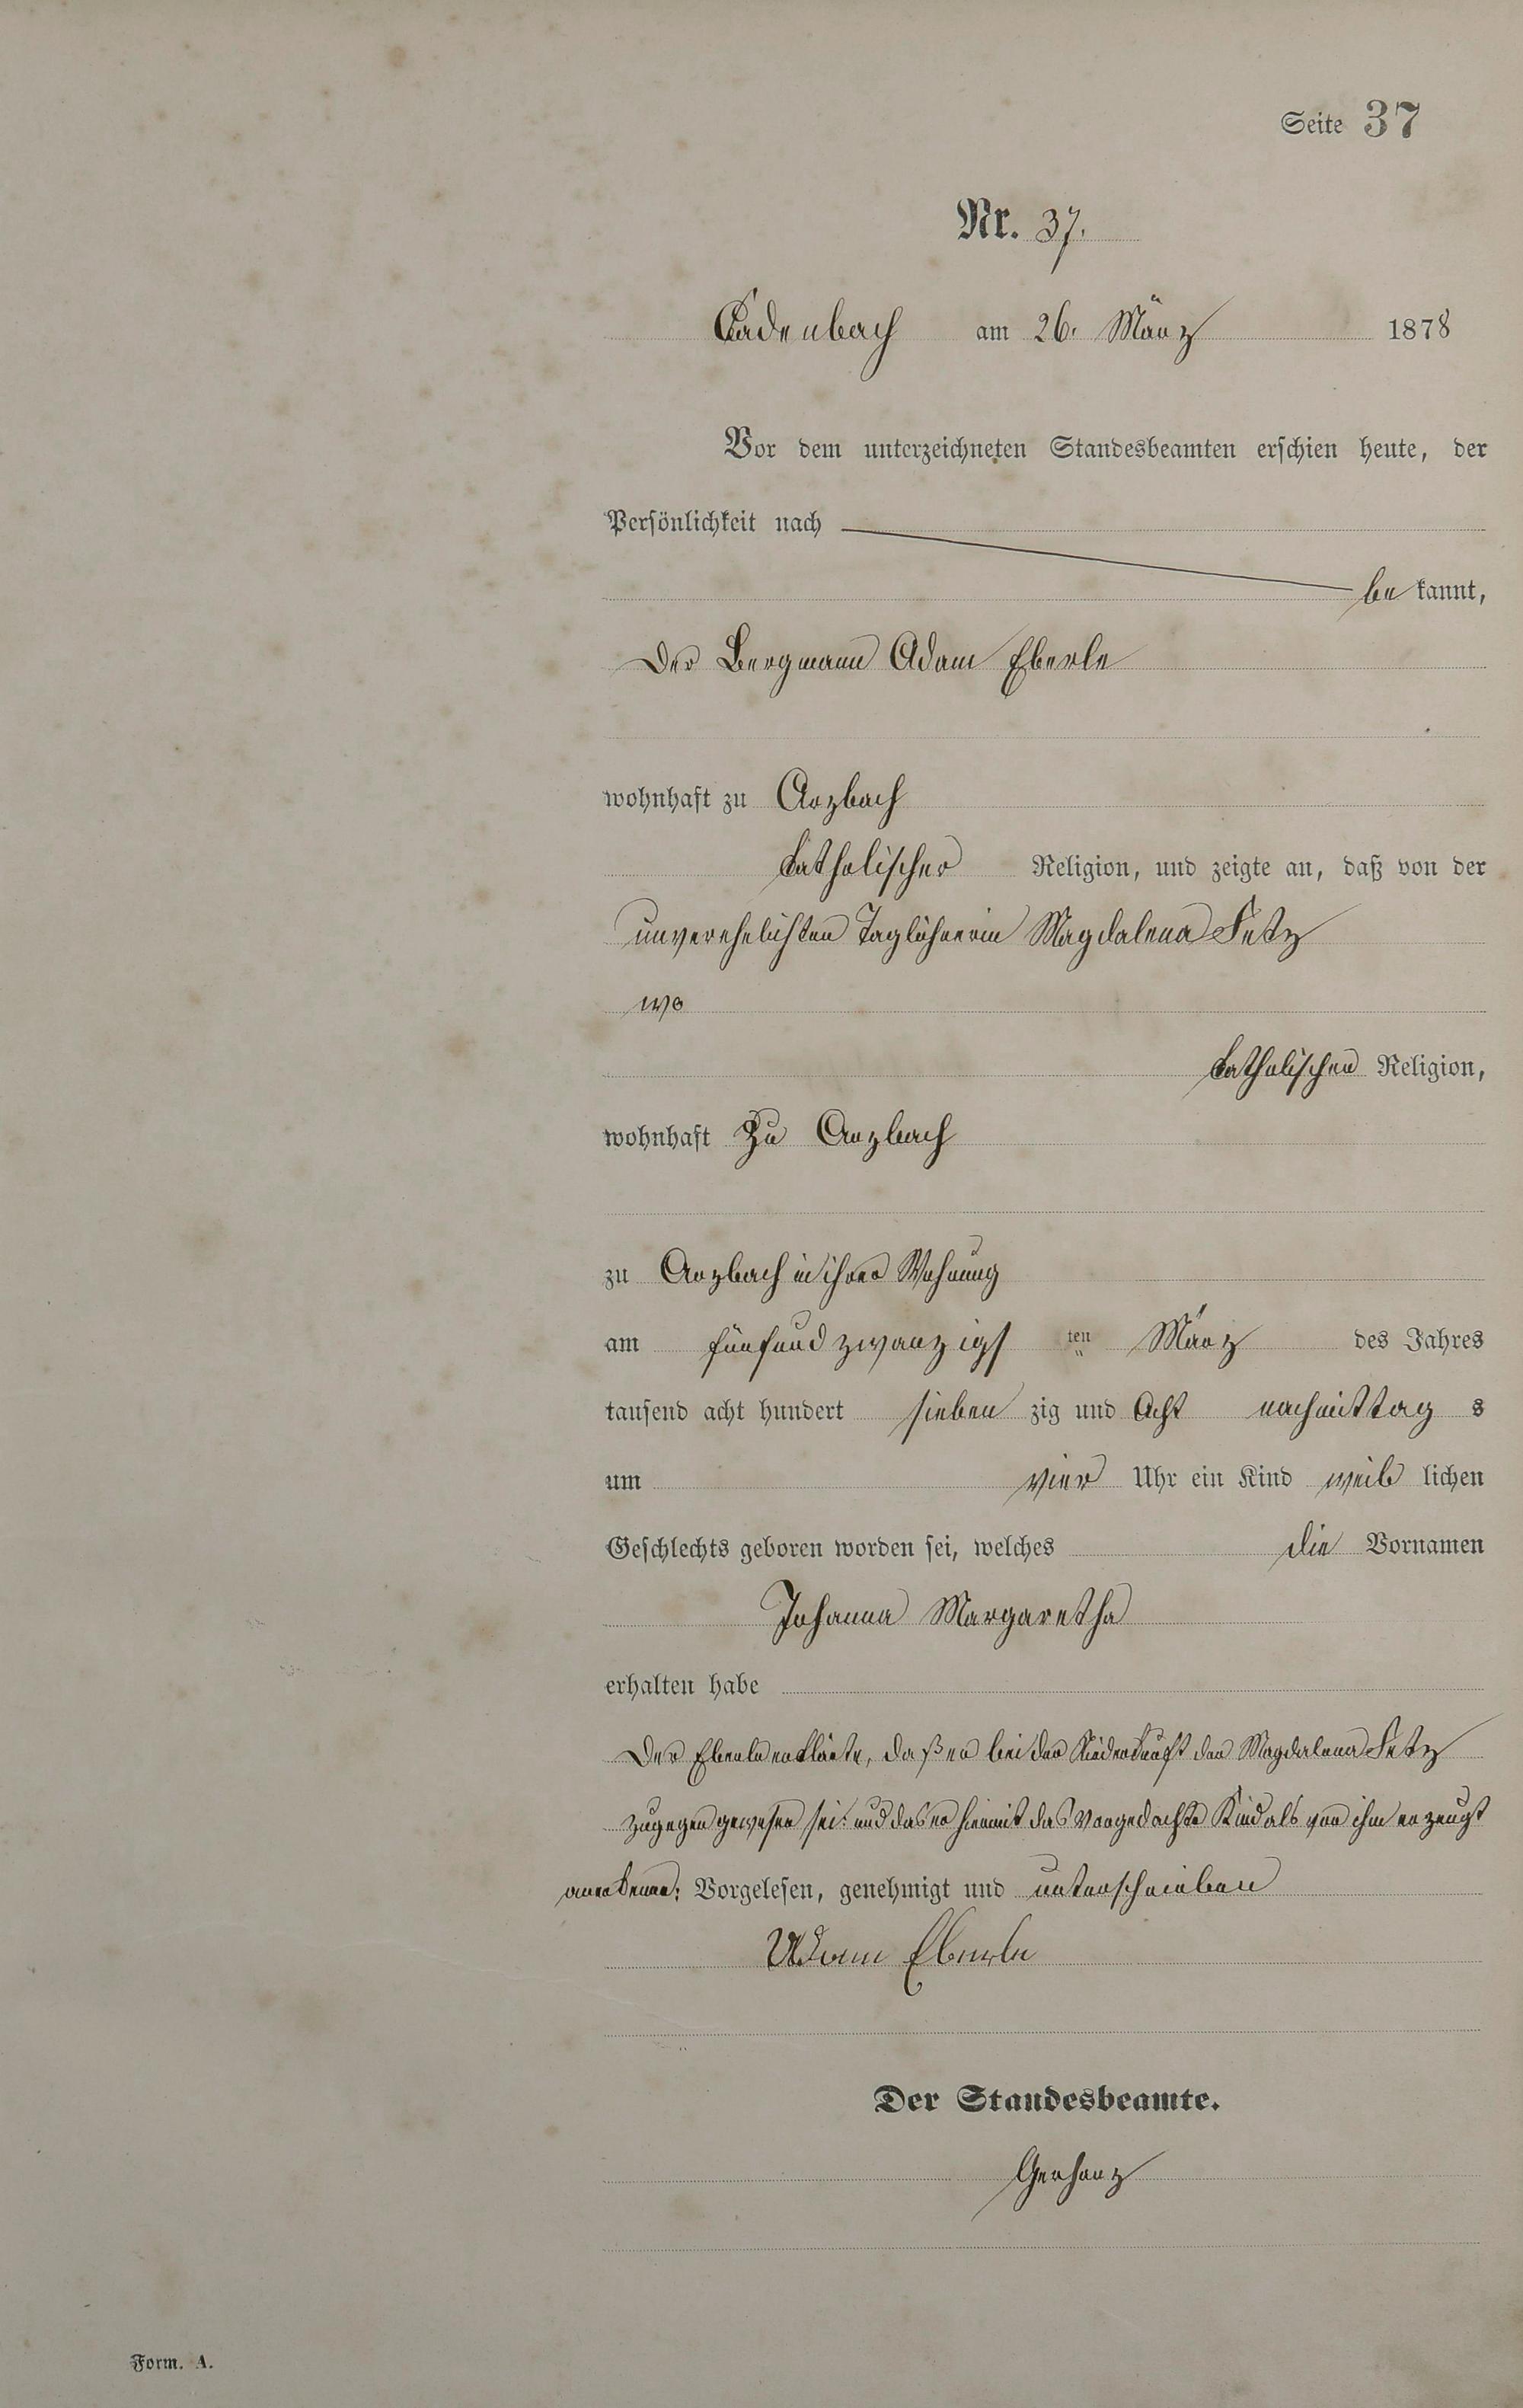 Seite 37
Nr. 37.
Cadenbach am 26. März 1878
Vor dem unterzeichneten Standesbeamten erschien heute, der
Persönlichkeit nach
be kannt,
Der Bergmann Adam Eberle
wohnhaft zu Arzbach
katholischer Religion, und zeigte an, daß von der
unverehelichten Taglöhnerin Magdalena Fetz
wo
katholischen Religion,
wohnhaft zu Arzbach
zu Arzbach in ihrer Wohnung
am fünfundzwanzigs ten März des Jahres
tausend acht hundert sieben zig und Acht nachmittag s
um vier Uhr ein Kind weib lichen
Geschlechts geboren worden sei, welches die Vornamen
Johanna Margaretha
erhalten habe
Der Eberle erklärte, daß er bei der Niederkunft der Magdalena Fetz
zugegen gewesen sei und das er hiermit das Vorgedachte Kind als von ihm erzeugt
anerkenne; Vorgelesen, genehmigt und unterschrieben
Adam Eberle
Der Standesbeamte.
Gerharz
Form. A.